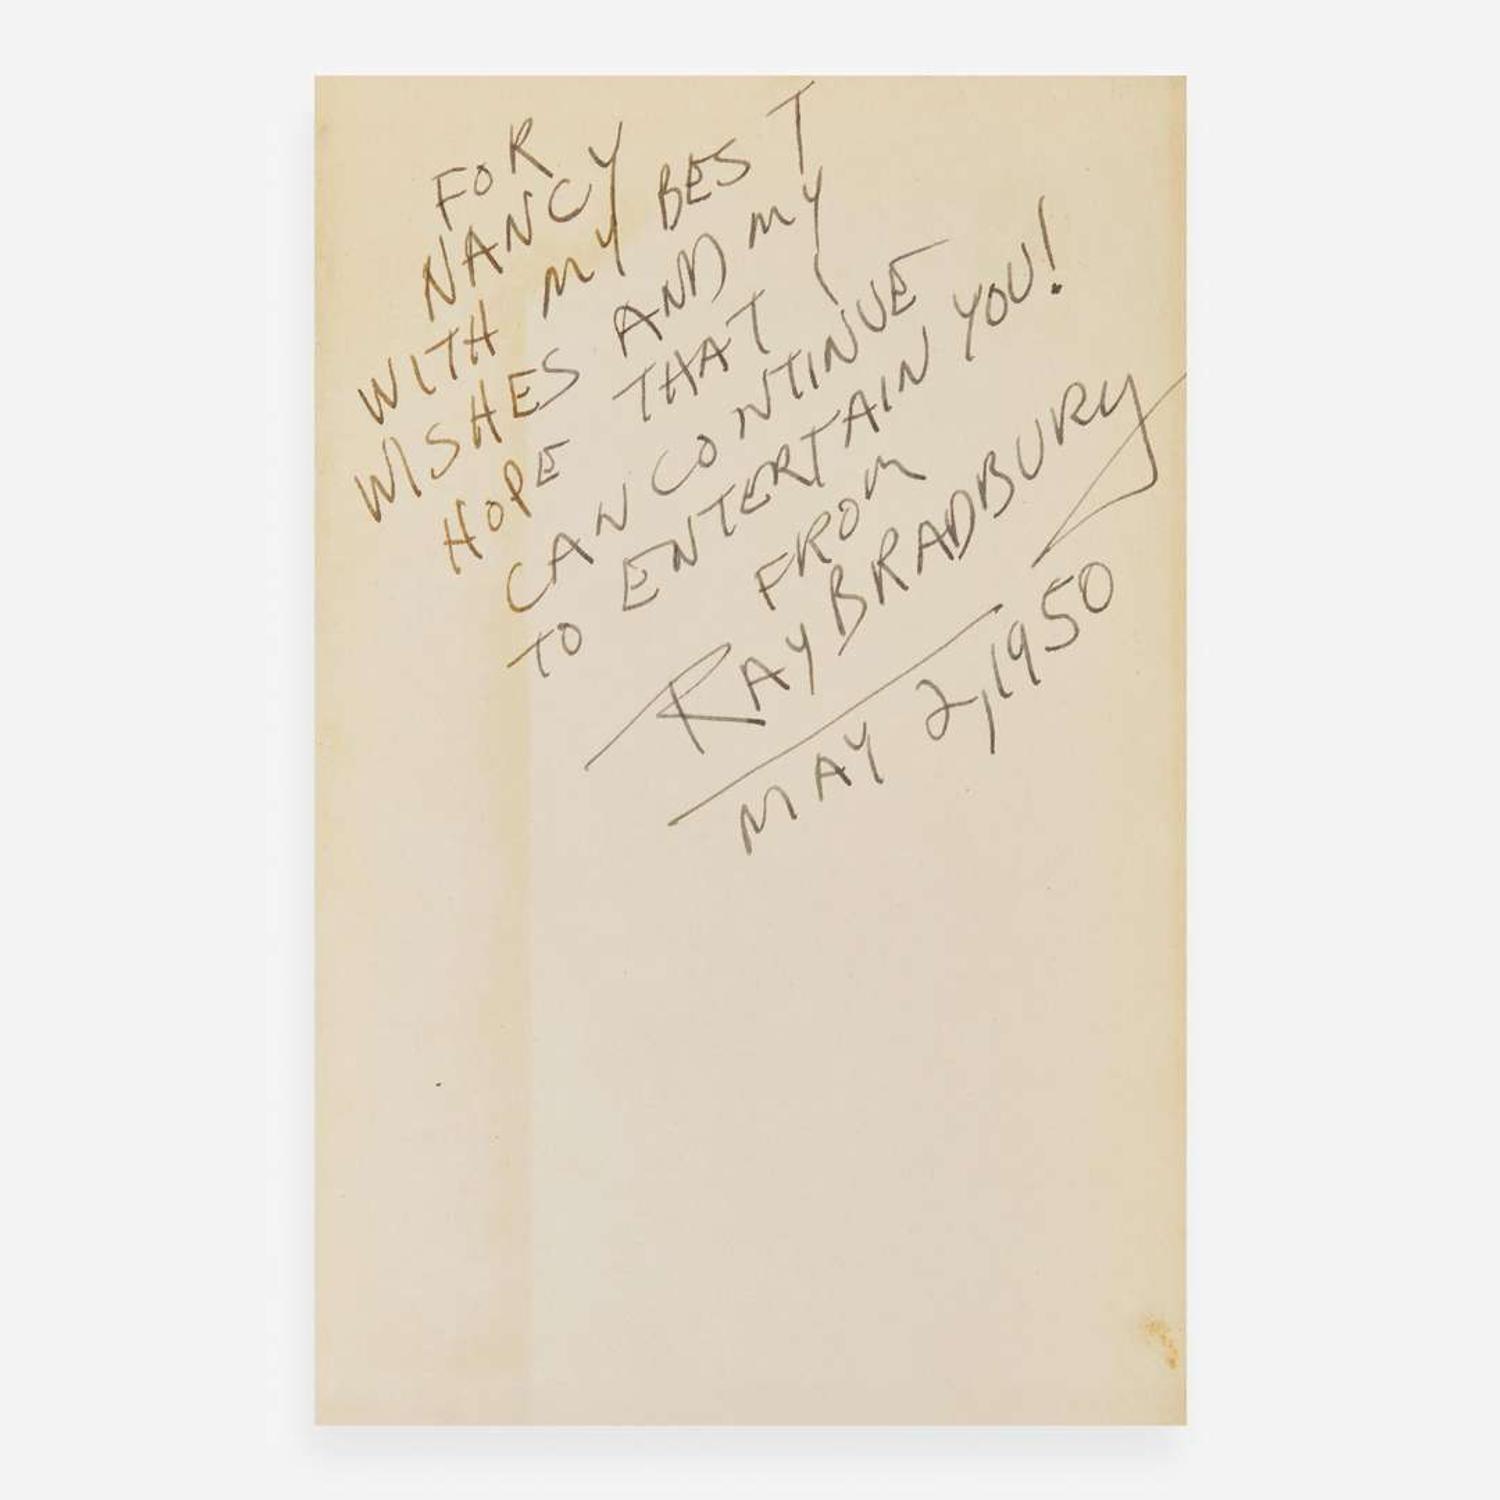 FOR
NANCY
WITH MY BEST
WISHES AND MY
HOPE THAT I
CAN CONTINUE
TO ENTERTAIN YOU!
FROM
RAY BRADBURY
MAY 2, 1950